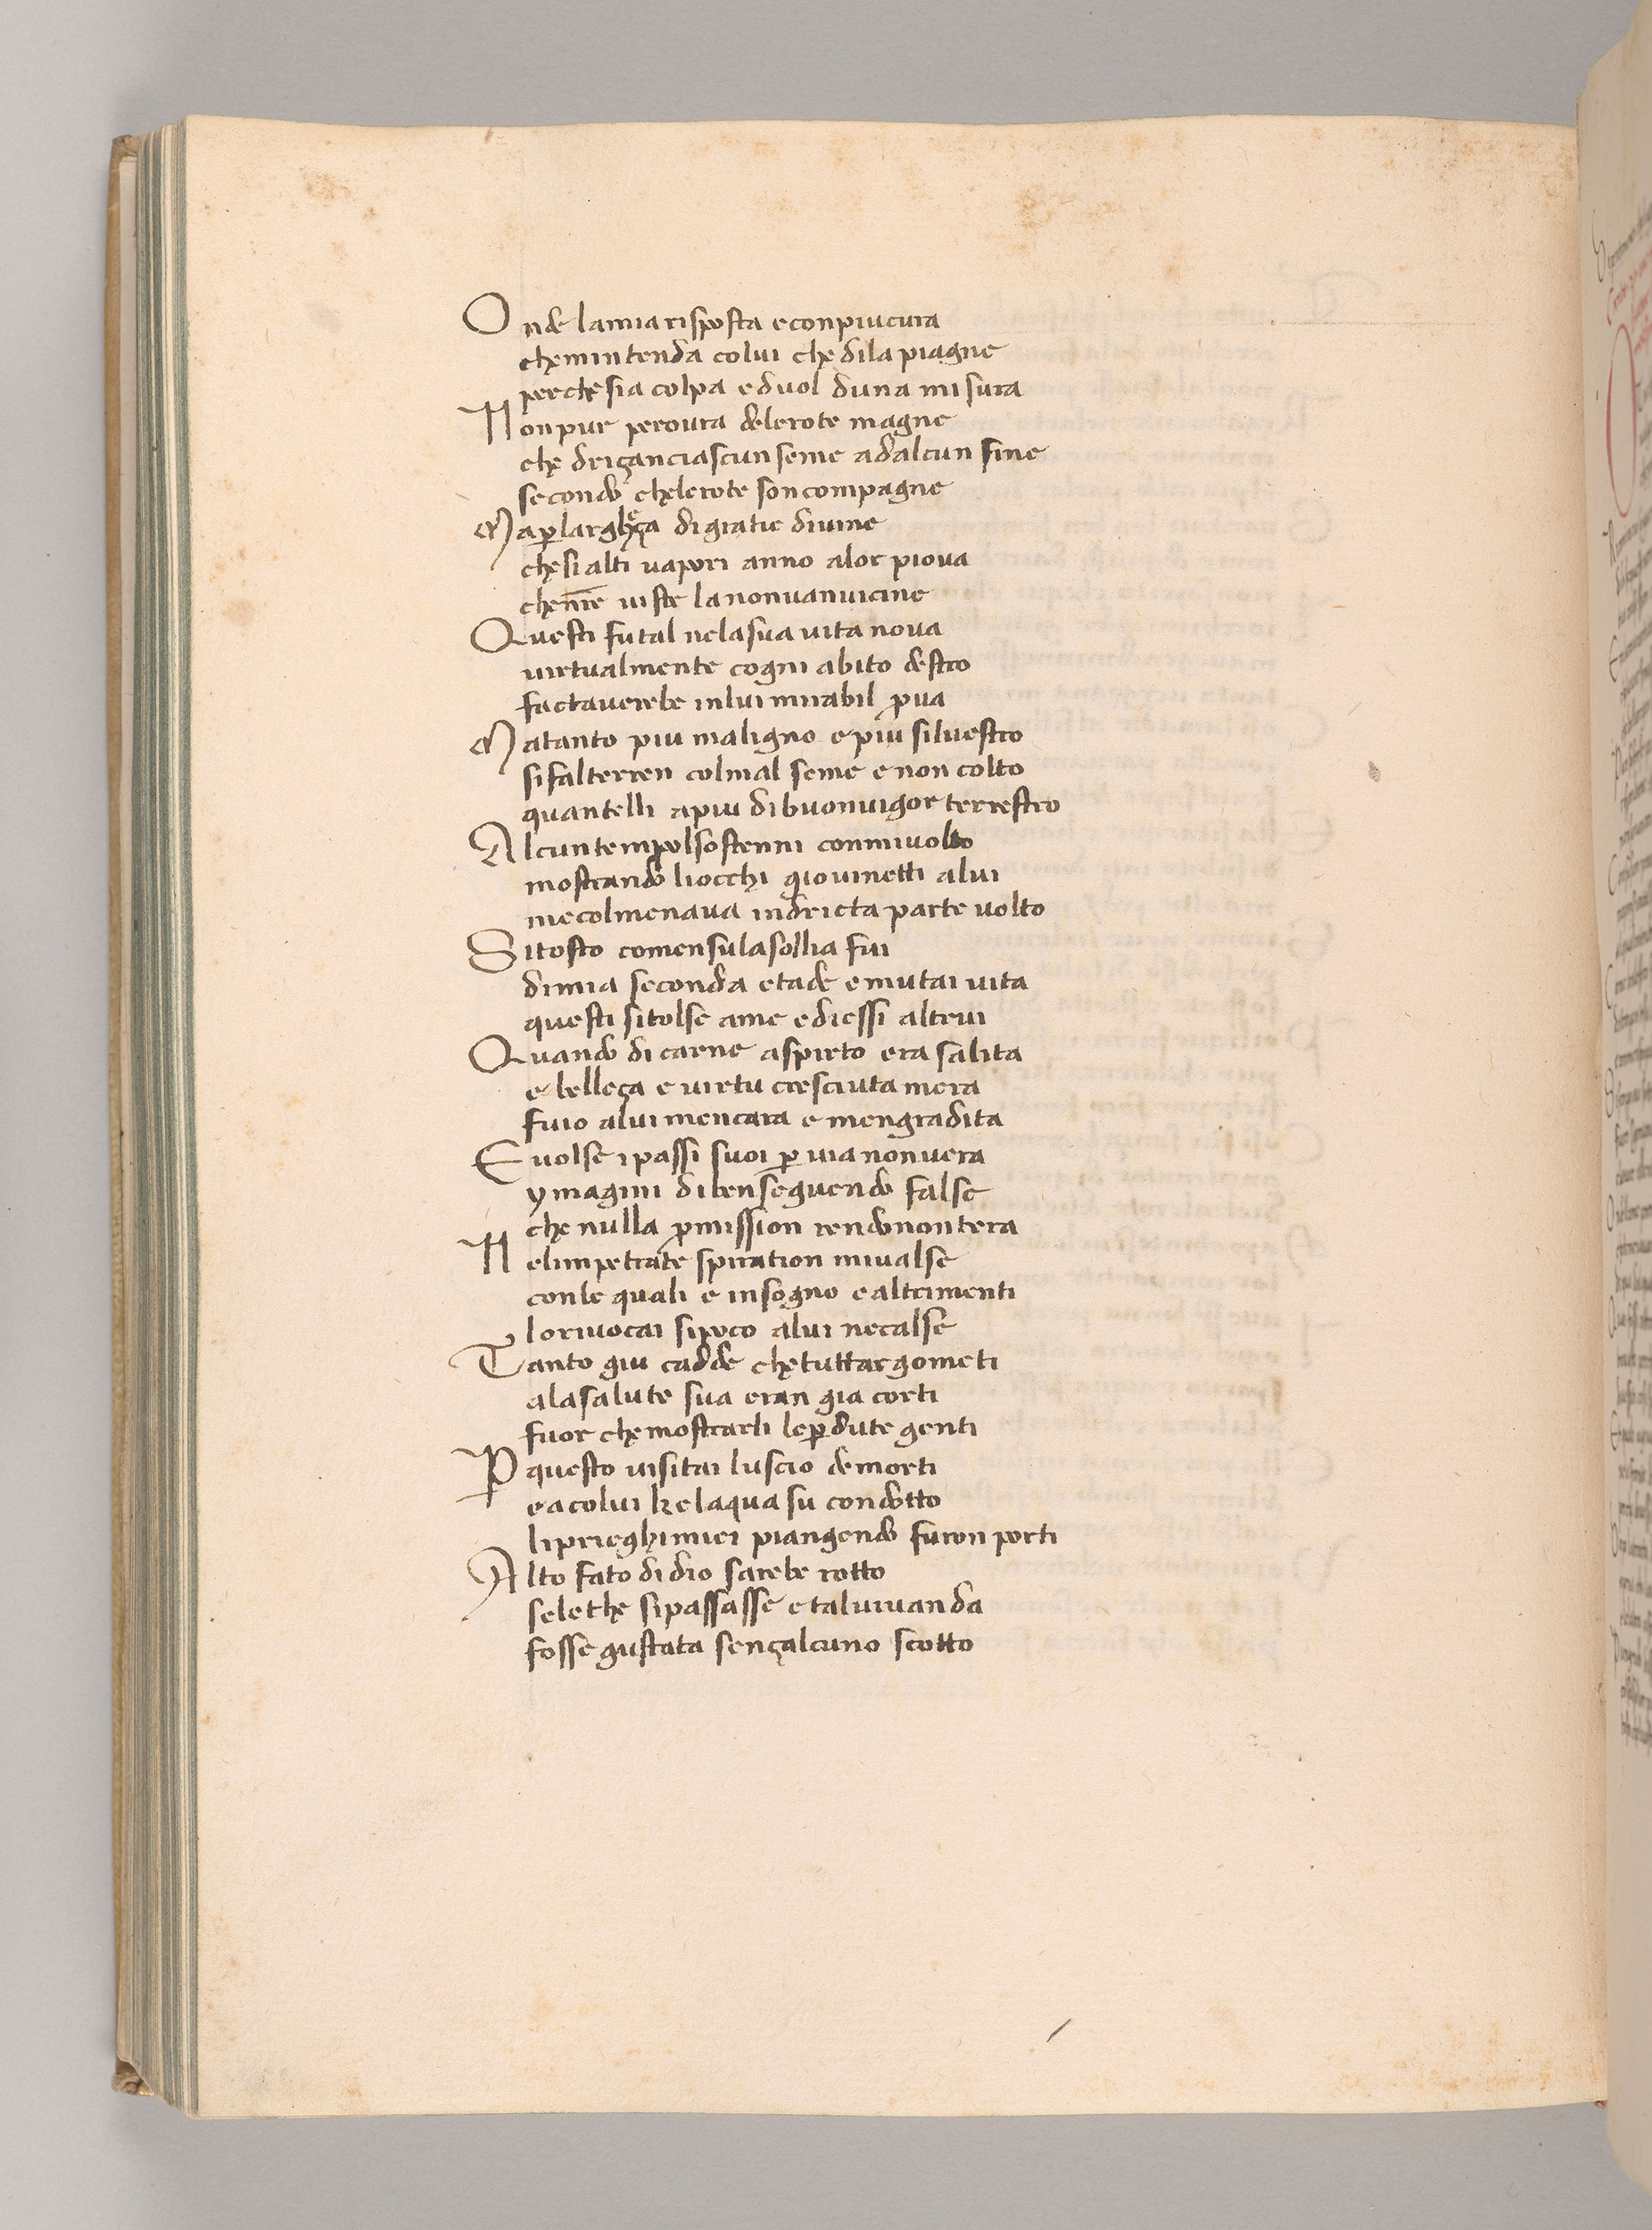 Onde lamia risposta econpiucura
chemintenda colui che dila piagne
perche sia colpa eduol duna misura
Non pur peroura delerote magne
che driçanciascun seme adalcun fine
secondo chelerote soncompagne
Maꝑlargheça digratie diuine
chesi alti uapori anno alor pioua
chenr̄e uiste lanonuanuicine
Questi futal nelasua uita noua
uirtualmente cogni abito destro
factauerebe inlui mirabil ꝓua
Matanto piu maligno epiu siluestro
sifalterren colmal seme e non colto
quantelli apiu dibuonuigor terrestro
Alcuntempolsostenni conmiuolto
mostrando liocchi giouinetti alui
mecolmenaua indricta parte uolto
Sitosto comensulasollia fui
dimia seconda etade emutai uita
questi sitolse ame ediessi altrui
Quando di carne aspirto era salita
e belleça e uirtu cresciuta mera
fuio alui mencara e mengradita
Euolse ipassi suoi ꝑ uia nonuera
ymagini diben seguendo false
che nulla ꝓmission rendonontera
Nelimpetrate spiration miualse
conle quali e insogno ealtrimenti
loriuocai sipoco alui necalse
Tanto giu cadde chetuttargometi
alasalute sua eran gia corti
fuor chemostrarli leꝑdute genti
Ꝑ questo uisitai luscio demorti
eacolui kelaqua su condotto
liprieghimiei piangendo furon porti
Alto fato didio sarebe rotto
selethe sipassasse etaluiuanda
fosse gustata sençalcuno scotto